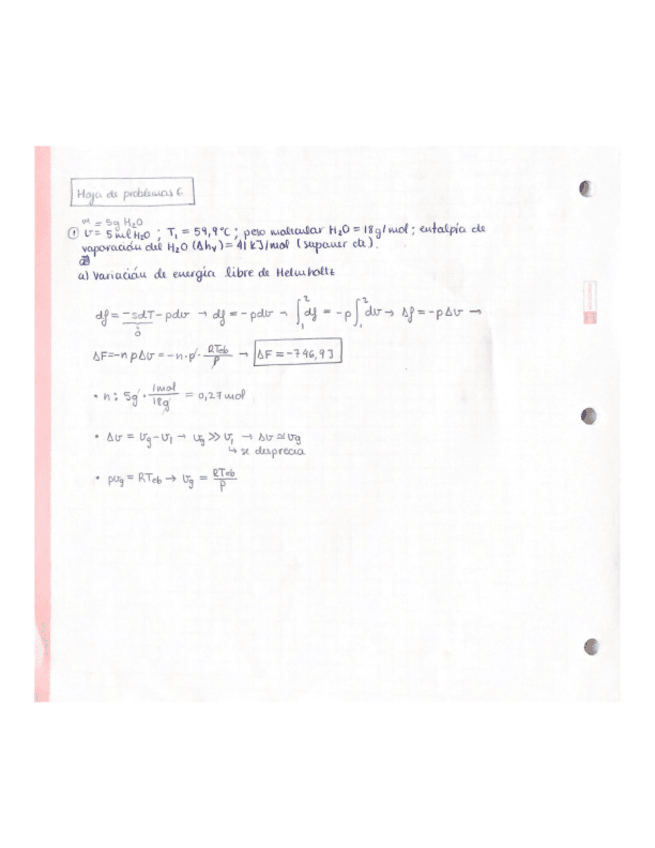 Hoja de problemas 6
m = 5g H₂O
① v = 5 ml H₂O ; T₁ = 59,9°C ; peso molecular H₂O = 18g/mol ; entalpía de
vaporación del H₂O (Δhᵥ) = 41 kJ/mol (suponer cte).
a) Variación de energía libre de Helmholtz
df = -sdT - pdv → df = -pdv → ∫₁² df = -p ∫₁² dv → Δf = -pΔv →
0
ΔF = -n pΔv = -n·p · RTeb/p → ΔF = -746,9 J
• n: 5g · 1mol/18g = 0,27 mol
• Δv = vg - v₁ → vg ≫ v₁ → Δv ≃ vg
↳ se desprecia
• pvg = RTeb → vg = RTeb/p